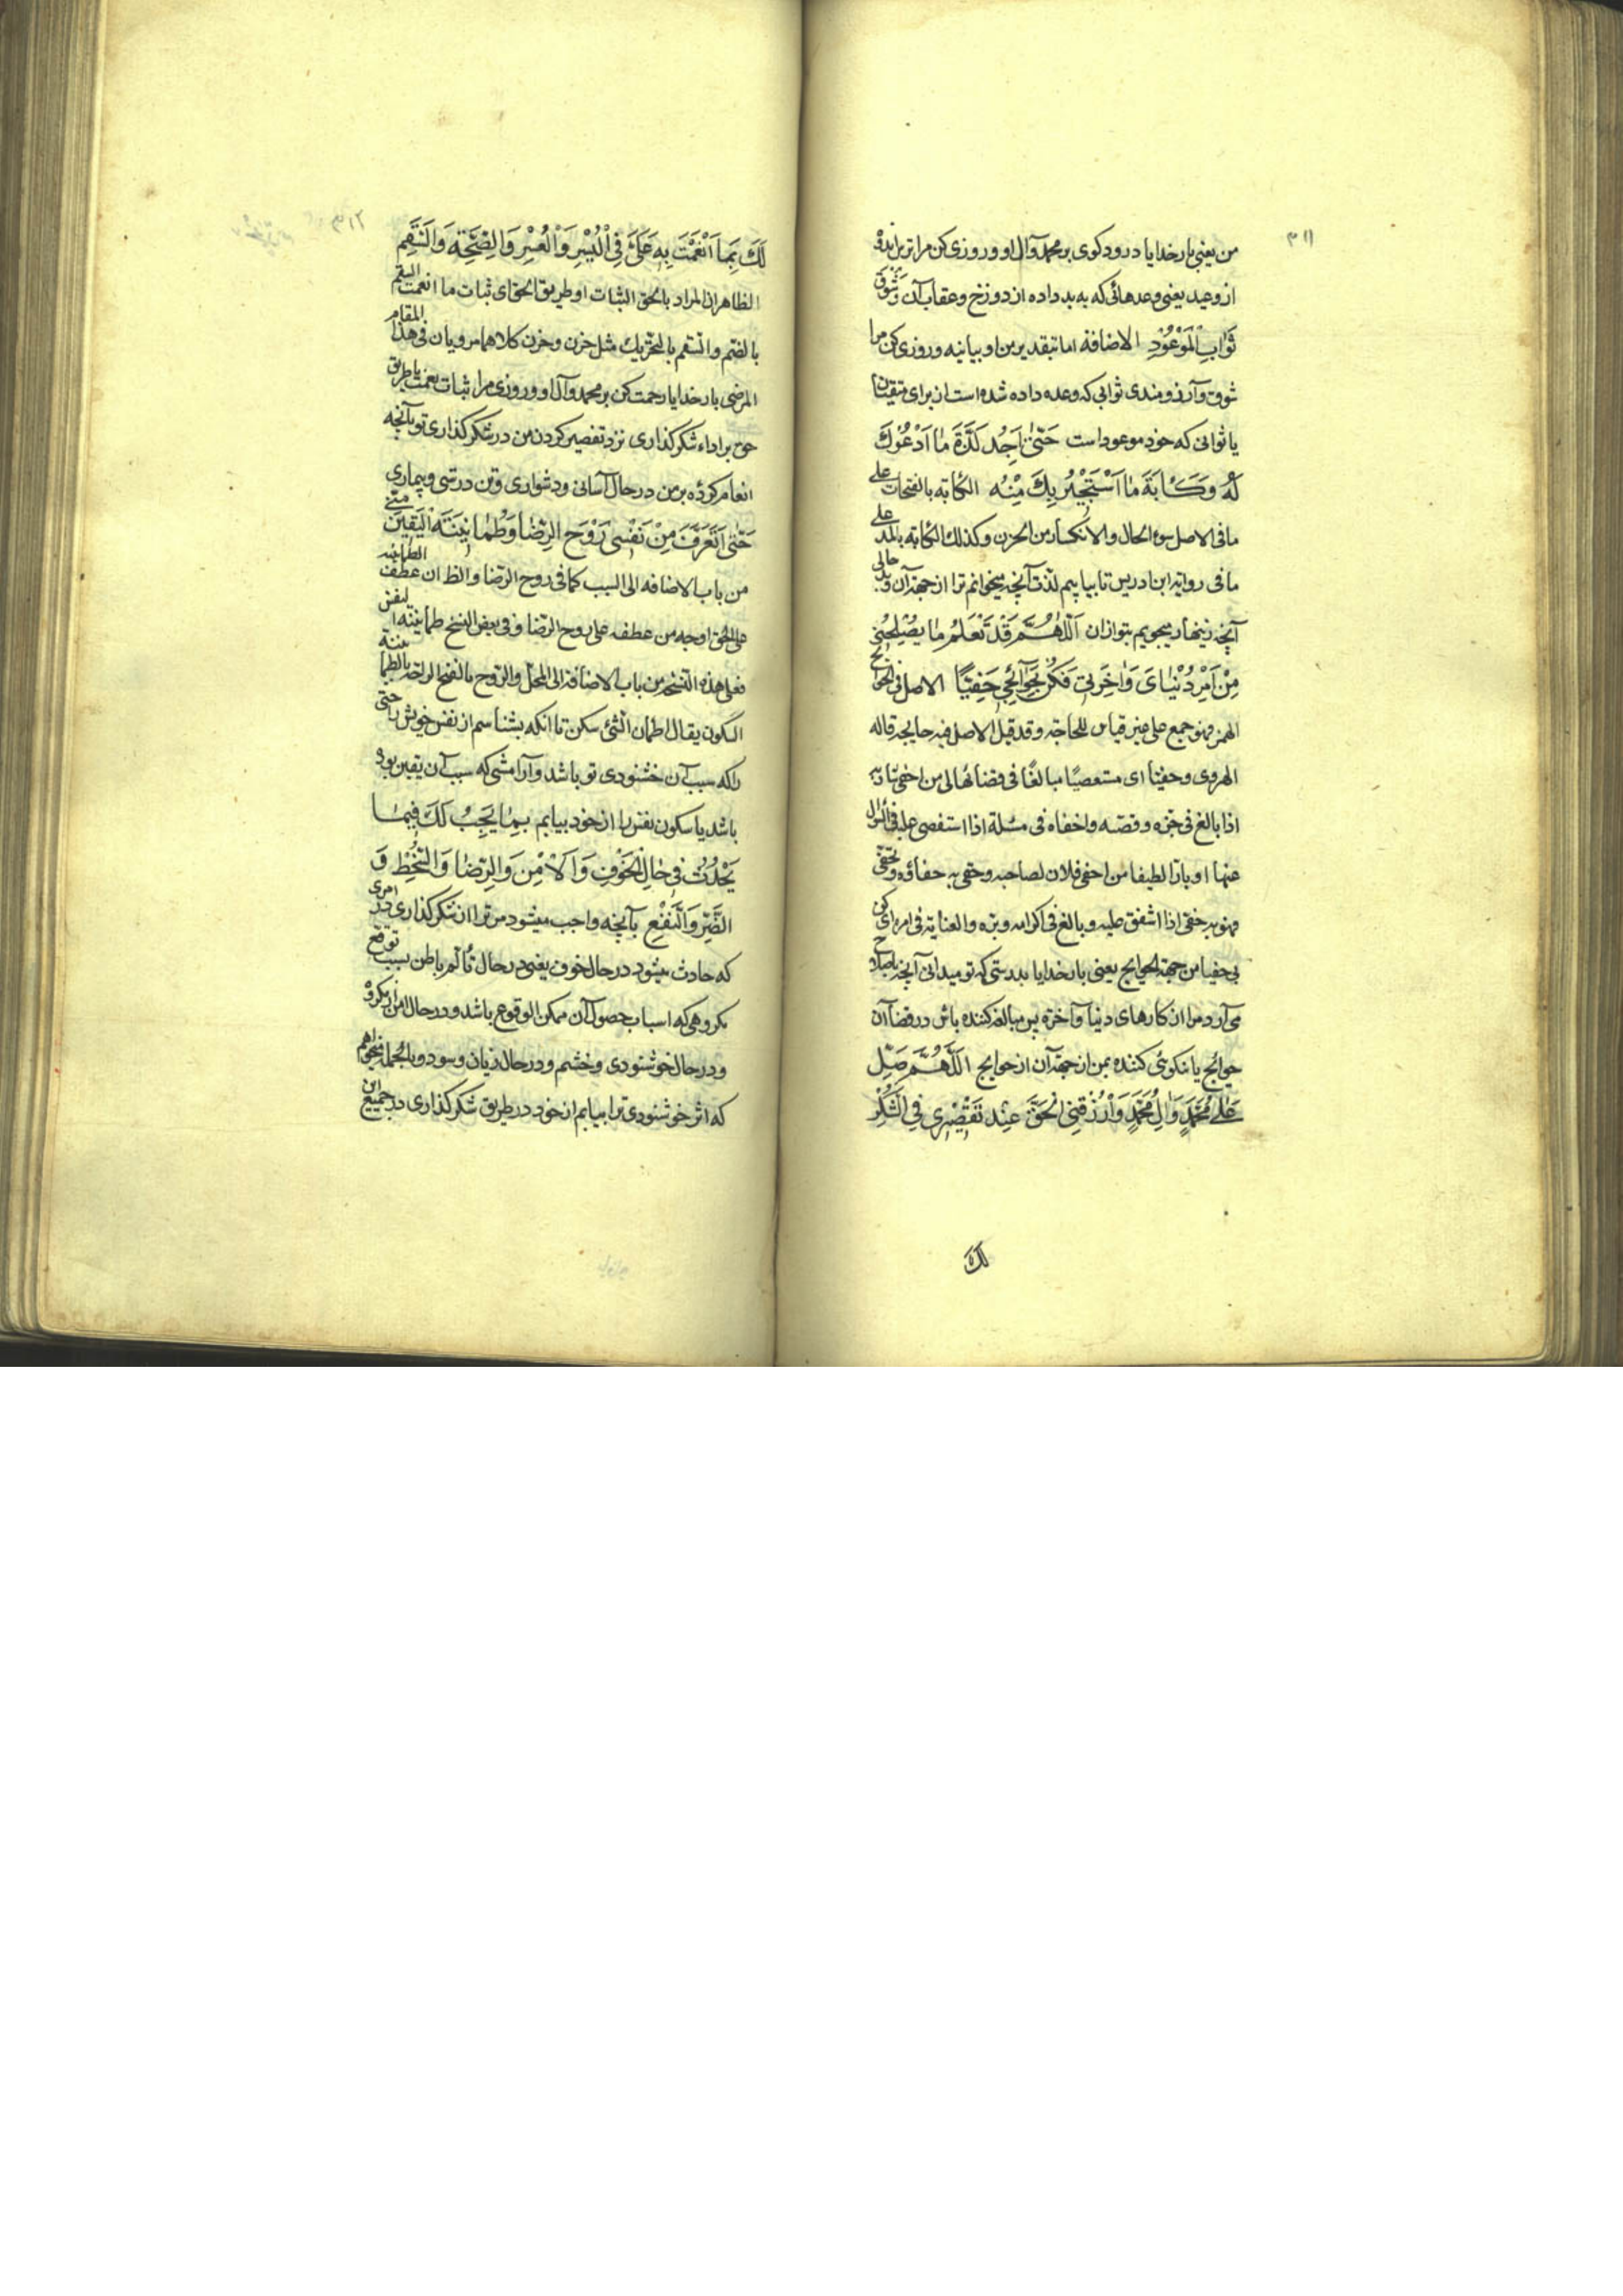 ۳۱۱
من یعنی بارخدایا درود کوی بر محمد وآل او وروزی کن مرا ترس اندوه
از وعید یعنی وعدهائی که به بد داده از دوزخ وعقاب آن وَشَوْقَ
ثَوَابِ الْمَوْعُودِ الاضافة اما بتقدیر من او بیانیه وروزی کن مرا
شوق وآرزومندی ثوابی که وعده داده شده است از برای متقیان
یا ثوابی که خود موعود است حَتّٰی اَجِدَ لَذَّةَ مٰا اَدْعُوكَ
لَهُ وَكَـاٰبَةَ مٰا اَسْتَجِيرُ بِكَ مِنْهُ الکابة بالفتحات علی
ما فی الاصل سوء الحال والانکسار من الحزن وکذلك الکآبة بالمد علی
ما فی روایة ابن ادریس تا بیابیم لذت آنچه میخوانم ترا از جهة آن وبد حالی
آنچه زینهار میجویم بتو از ان اَللّٰهُمَّ قَدْ تَعْلَمُ مٰا يُصْلِحُنِي
مِنْ اَمْرِ دُنْيٰايَ وَاٰخِرَتِي فَكُنْ بِحَوٰآئِجِي حَفِيًّا الاصل فی الحوائج
الهمز فهو جمع علی غیر قیاس للحاجة وقد قیل الاصل فیه حایجة قاله
الهروی وحفیا ای مستقصیًا مبالغًا فی قضائها لی من احفی شاربه
اذا بالغ فی جزه وقصه واحفاه فی مسئلة اذا استقصی علیه فی السؤال
عنها او بارًا لطیفا من احفی فلان لصاحبه وحفی به حفاوة وتحفی
فهو به حفی اذا اشفق علیه وبالغ فی اکرامه وبره والعنایة فی امره ای کن
بی حفیا من جهة الحوایج یعنی بارخدایا بدرستی که تو میدانی آنچه باصلاح
می آرد مرا از کارهای دنیا وآخرة پس مبالغه کننده باش در قضا آن
حوائج یا نکوئی کننده بمن از جهة آن از حوایج اَللّٰهُمَّ صَلِّ
عَلٰى مُحَمَّدٍ وَاٰلِ مُحَمَّدٍ وَارْزُقْنِي الْحَقَّ عِنْدَ تَقْصِيرِي فِي الشُّكْرِ
لك
۳۱۲
لَكَ بِمٰا اَنْعَمْتَ بِهِ عَلَيَّ فِي الْيُسْرِ وَالْعُسْرِ وَالصِّحَّةِ وَالسَّقَمِ
الظاهر ان المراد بالحق الثبات او طریق الحق ای ثبات ما انعمت السقم
بالضم والسقم بالتحریك مثل حزن وحزن کلاهما مرویان فی هذا المقام
المرضی بارخدایا رحمت کن بر محمد وآل او وروزی مرا ثبات نعمت یا طریق
حق بر اداء شکر کذاری نزد تقصیر کردن من در شکر کذاری تو بآنچه
انعام کرده بر من در حال آسانی ودشواری وتن درستی وبیماری
حَتّٰى اَتَعَرَّفَ مِنْ نَفْسِي رَوْحَ الرِّضٰا وَطُمَأْنِينَةَ الْيَقِينَ مِنّي
من باب الاضافه الی السبب کما فی روح الرضا والظ ان عطف الطمانینه
علی الحق اوجه من عطفه علی روح الرضا وفی بعض النسخ طمانینة النفس
فعلی هذه النسخه من باب الاضافة الی المحل والروح بالفتح الراحة والطمانینة
السکون یقال اطمان الشئ سکن تا آنکه بشناسم از نفس خویش راحتی
را که سبب آن خشنودی تو باشد وآرامشی که سبب آن یقین بوده
باشد یا سکون نفس را از خود بیابم بِمٰا يَجِبُ لَكَ فِيمٰـا
يَحْدُثُ فِي حٰالِ الْخَوْفِ وَالْاَمْنِ وَالرِّضٰا وَالسُّخْطِ وَ
الضَّرِّ وَالنَّفْعِ بآنچه واجب میشود مر ترا از شکر کذاری در امری
که حادث میشود در حال خوف یعنی در حال تألم باطن بسبب توقع
مکروهی که اسباب حصول آن ممکن الوقوع باشد ودر حال امن از مکروه
ودر حال خوشنودی وخشم ودر حال زیان وسود وبالجمله میخواهم
که اثر خوشنودی ترا بیابم از خود در طریق شکر کذاری در جمیع این